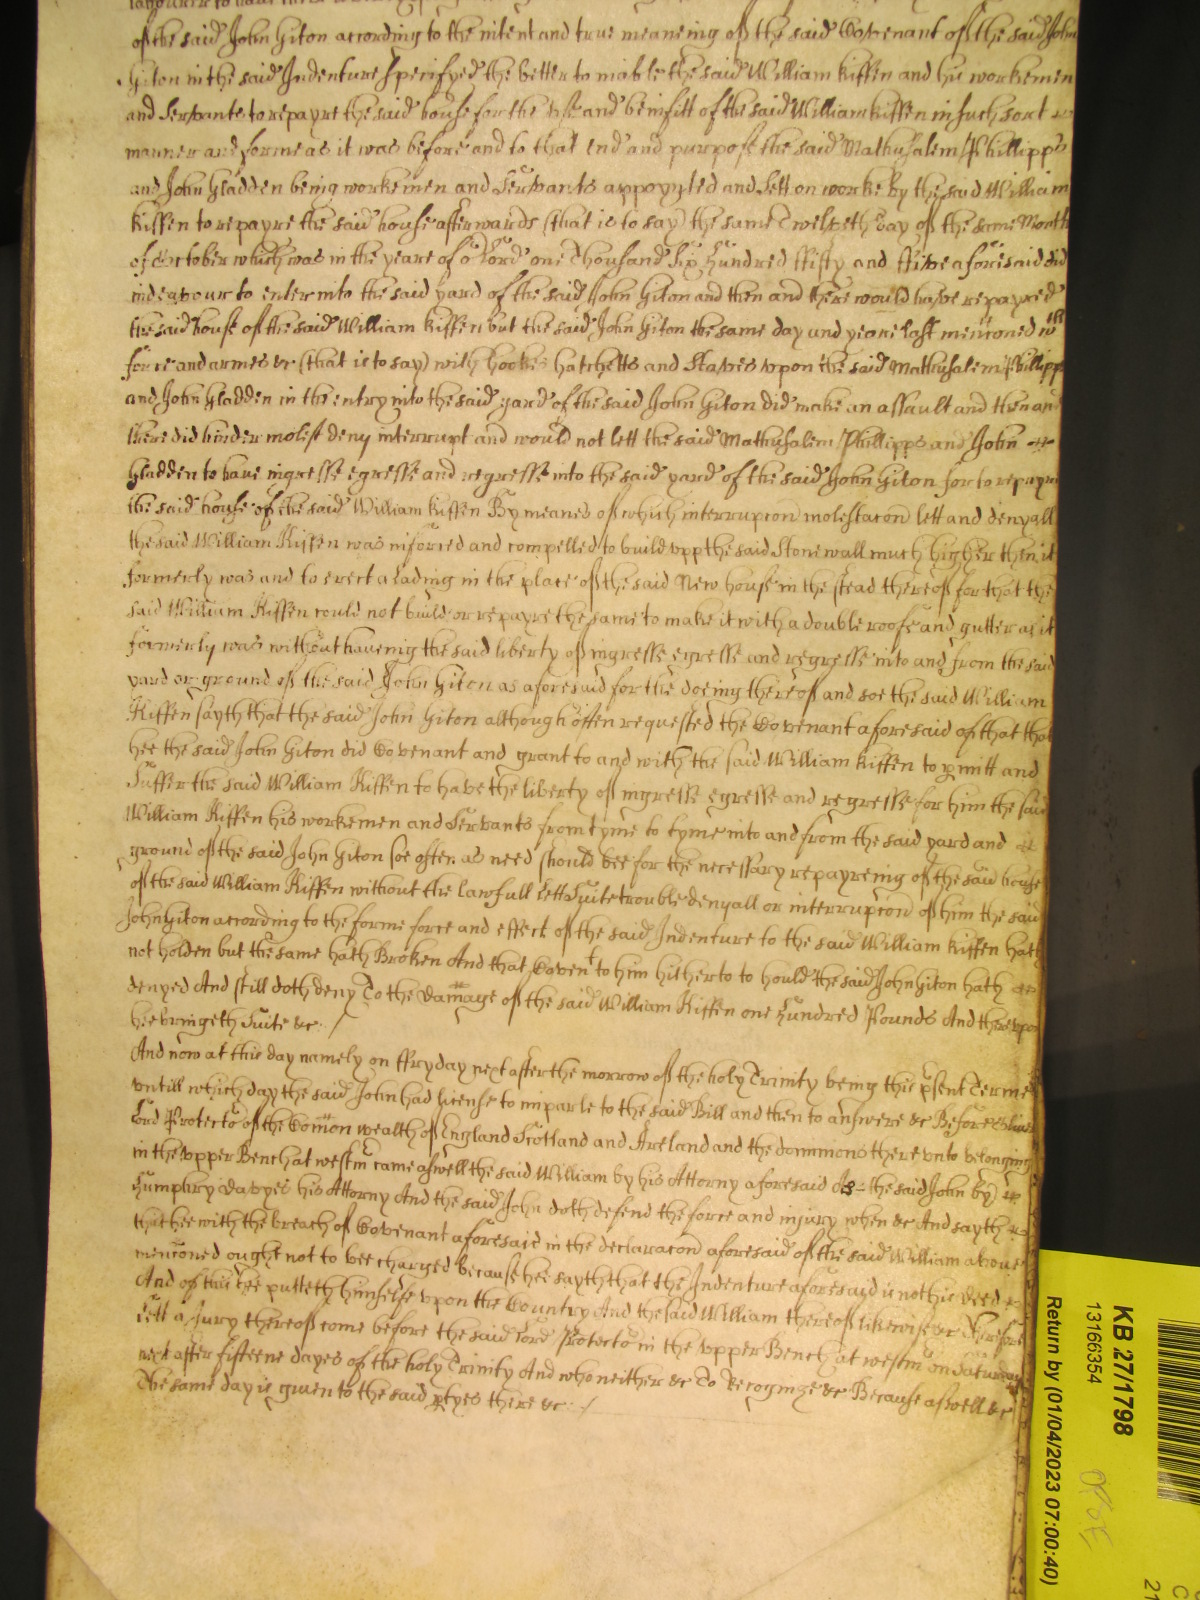 of the said John Giton according to the intent and true meaneing of the said Covenant of the said John
Giton in the said Indenture specifyed the better to inable the said William Kiffen and his workemen
and Servants to repayre the said house for the use and benifitt of the said William Kiffen in such sort
manner and forme as it was before and to that end and purpose the said Mathusalem Phillipps
and John Gladden being workemen and Servants appoynted and sett on worke by the said William
Kiffen to repayre the said house afterwards (that is to say) the same Twelveth day of the same Month
of October which was in the yeare of or Lord one Thousand Six Hundred ffifty and ffive aforesaid did
indeavour to enter into the said yard of the said John Giton and then and there would have repayred
the said house of the said William Kiffen but the said John Giton the same day and yeare last mencioned wth
force and armes &c (that is to say) with hookes hatchetts and Staves upon the said Mathusalem Phillipps
and John Gladden in the entry into the said yard of the said John Giton did make an assault and then and
there did hinder molest deny interrupt and would not lett the said Mathusalem Phillipps and John
Gladden to have ingresse egresse and regresse into the said yard of the said John Giton for to repayre
the said house of the said William Kiffen By meanes of which interrupcon molestacon lett and denyall
the said William Kiffen was inforced and compelled to build upp the said Stone wall much higher then it
formerly was and to erect a leading in the place of the said New house in the stead thereof for that the
said William Kiffen could not build or repayre the same to make it with a double roofe and gutter as it
formerly was without haveing the said liberty of ingresse egresse and regresse into and from the said
yard or ground of the said John Giton as aforesaid for the doeing thereof and soe the said William
Kiffen sayth that the said John Giton although often requested the Covenant aforesaid of that that
hee the said John Giton did Covenant and grant to and with the said William Kiffen to pmitt and
Suffer the said William Kiffen to have the liberty of ingresse egresse and regresse for him the said
William Kiffen his workemen and Servants from tyme to tyme into and from the said yard and
ground of the said John Giton soe often as need should bee for the necessary repayreing of the said house
of the said William Kiffen without the lawfull lett Suite trouble denyall or interrupcon of him the said
John Giton according to the forme force and effect of the said Indenture to the said William Kiffen hath
not holden but the same hath Broken And that Covent to him hitherto to hould the said John Giton hath
denyed And still doth deny To the damage of the said William Kiffen one Hundred Pounds And thereupon
hee bringeth Suite &c
And now at this day namely on ffryday next after the morrow of the holy Trinity being this psent Terme
untill which day the said John had license to imparle to the said Bill and then to answere &c Before Oliver
Lord Protector of the Comon wealth of England Scotland and Ireland and the dominions thereunto belonging
in the upper Bench at westm came aswell the said William by his Attorny aforesaid As the said John by
Humphry Davyes his Attorny And the said John doth defend the force and injury when &c And sayth
that hee with the breach of Covenant aforesaid in the declaracon aforesaid of the said William above
menconed ought not to bee charged because hee sayth that the Indenture aforesaid is not his deed
And of this hee putteth himselfe upon the Country And the said William thereof likewise &c Therefore
Lett a Jury thereof come before the said Lord Protector in the upper Bench at westm on Saturday
next after fifteene dayes of the holy Trinity And who neither &c To Recognize &c Because aswell &c
The same day is given to the said ptyes there &c
KB 27/1798
13166354
Return by (01/04/2023 07:00:40)